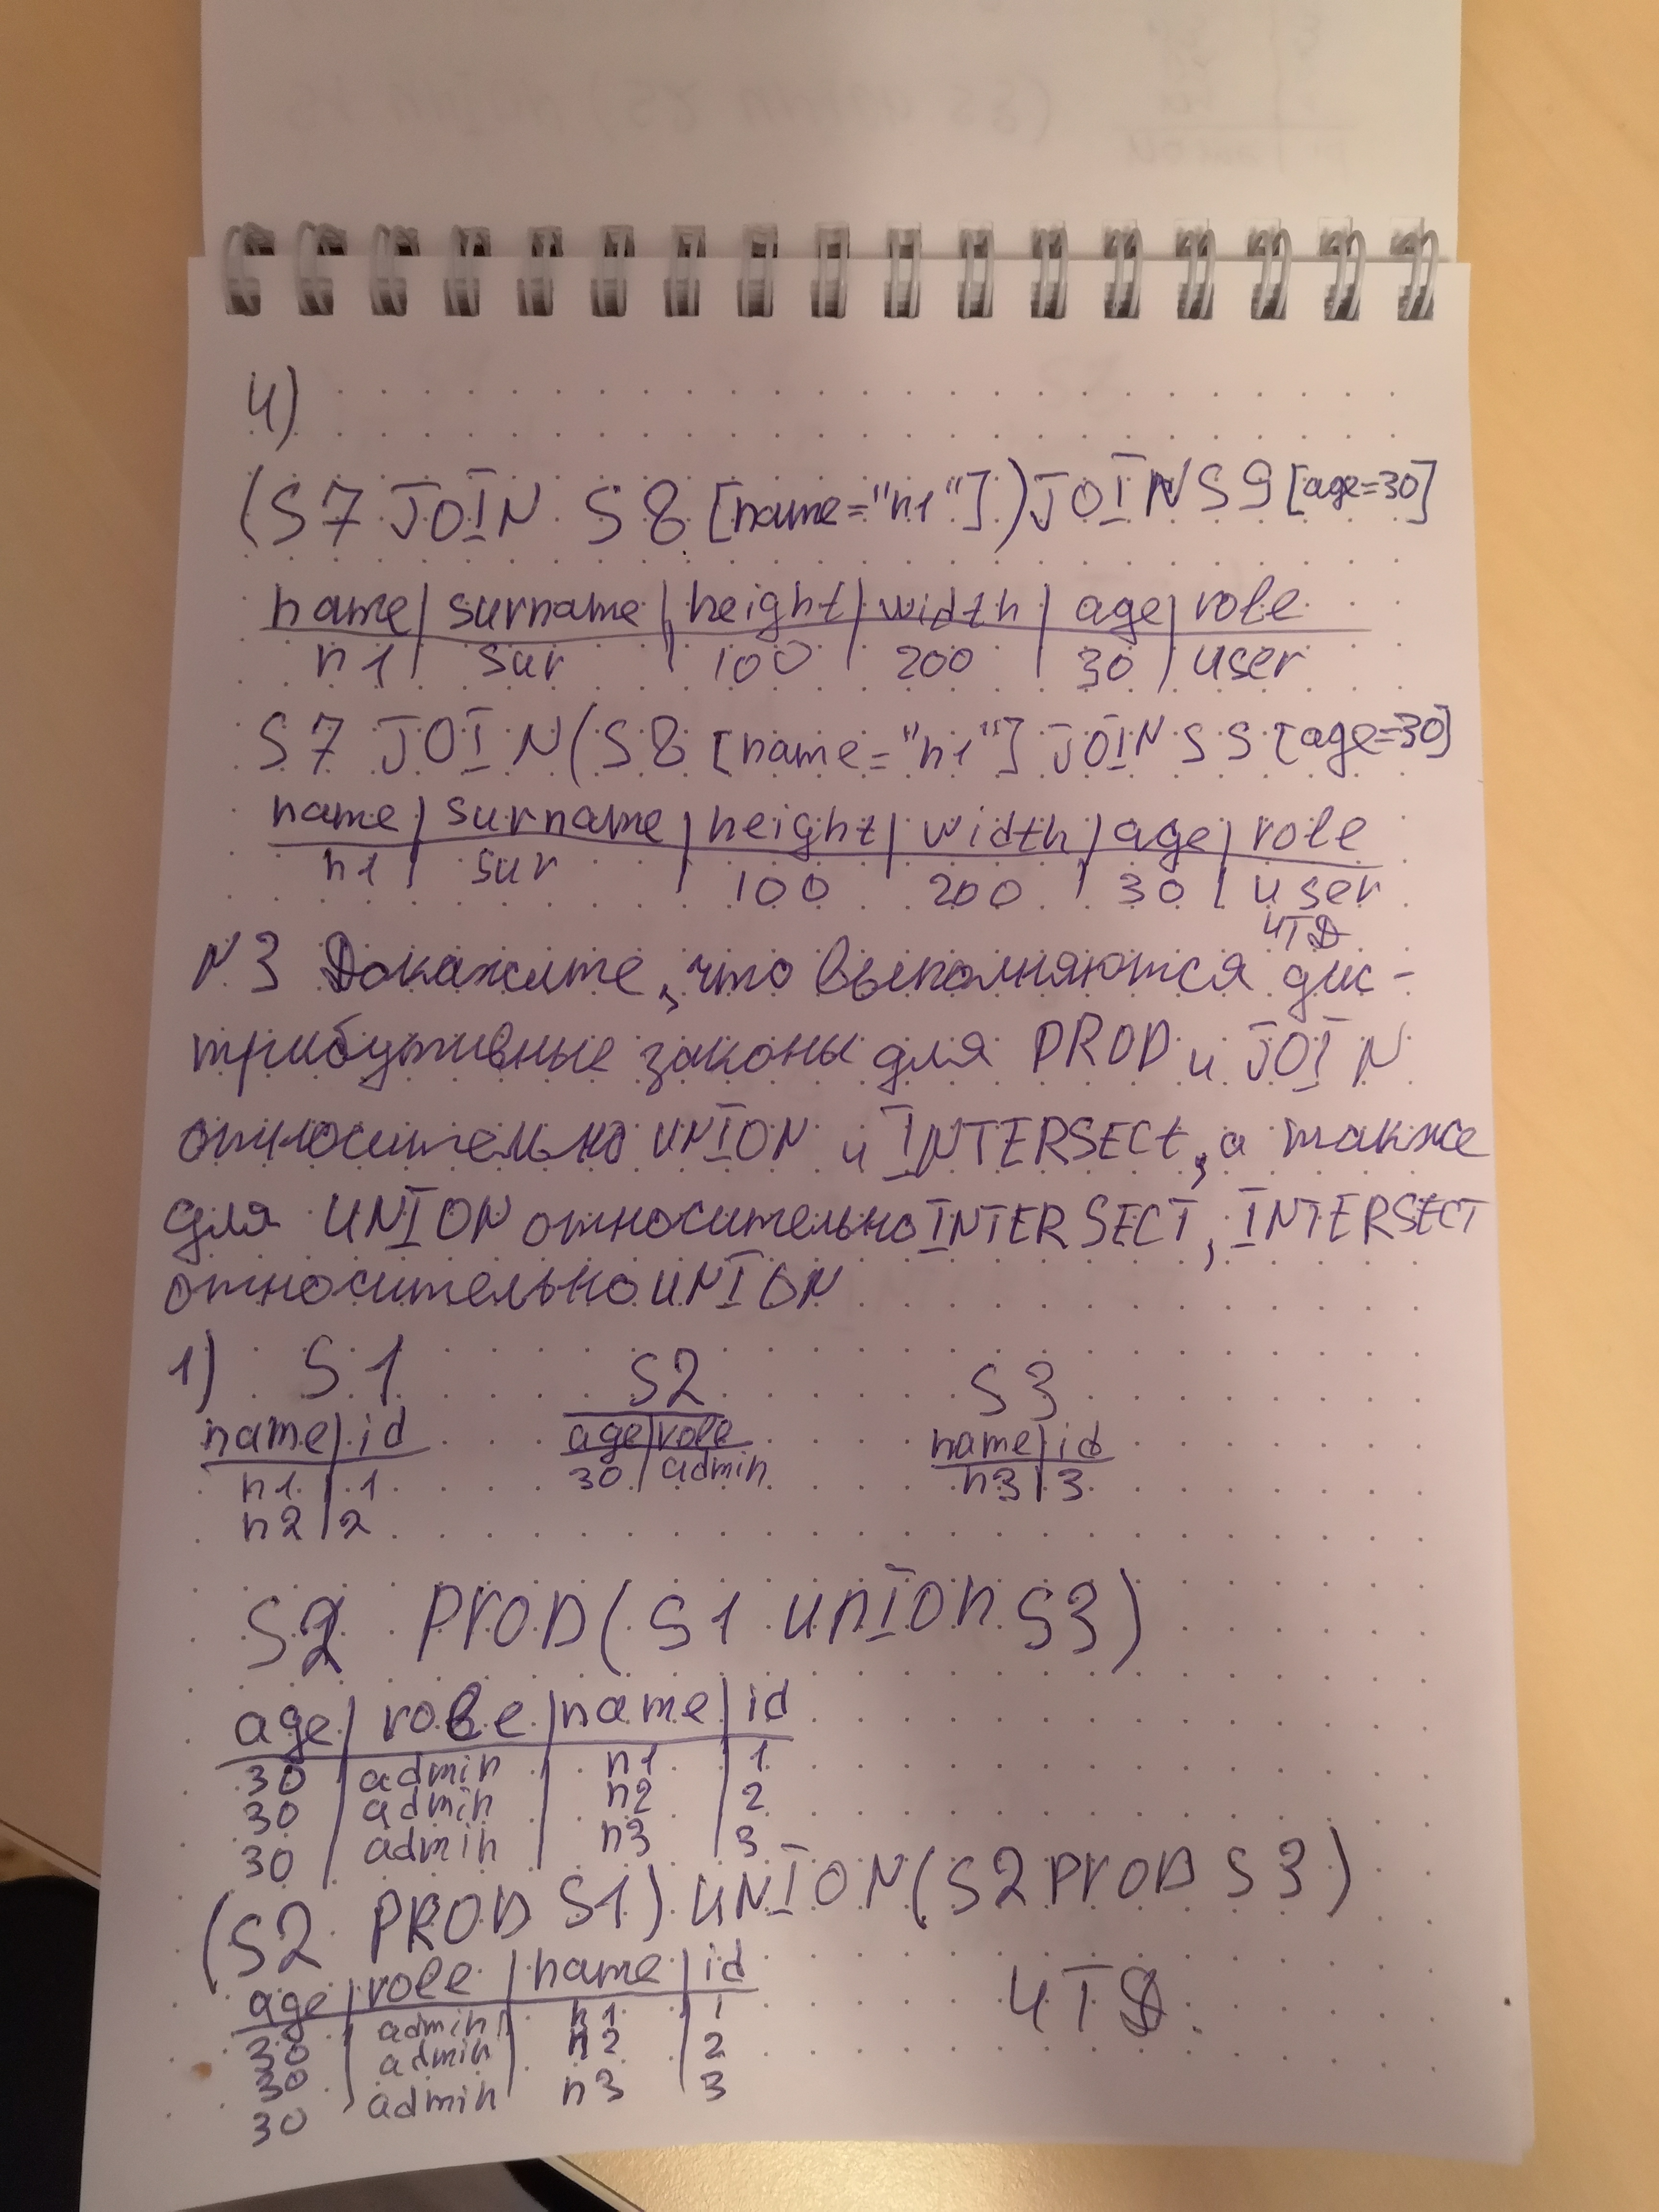 4)
(S7 JOIN S8 [name="n1"]) JOIN S9 [age=30]
name | surname | height | width | age | role
n1 | sur | 100 | 200 | 30 | user
S7 JOIN (S8 [name="n1"] JOIN S9 [age=30]
name | surname | height | width | age | role
n1 | sur | 100 | 200 | 30 | user
ЧТД
N3 Докажите, что выполняются дис-
трибутивные законы для PROD и JOIN
относительно UNION и INTERSECt, а также
для UNION относительно INTERSECT, INTERSECT
относительно UNION
1) S1 S2 S3
name | id age | role name | id
n1 | 1 30 | admin n3 | 3
n2 | 2
S2 PROD (S1 UNION S3)
age | role | name | id
30 | admin | n1 | 1
30 | admin | n2 | 2
30 | admin | n3 | 3
(S2 PROD S1) UNION (S2 PROD S3)
age | role | name | id
30 | admin | n1 | 1
30 | admin | n2 | 2
30 | admin | n3 | 3
ЧТД.